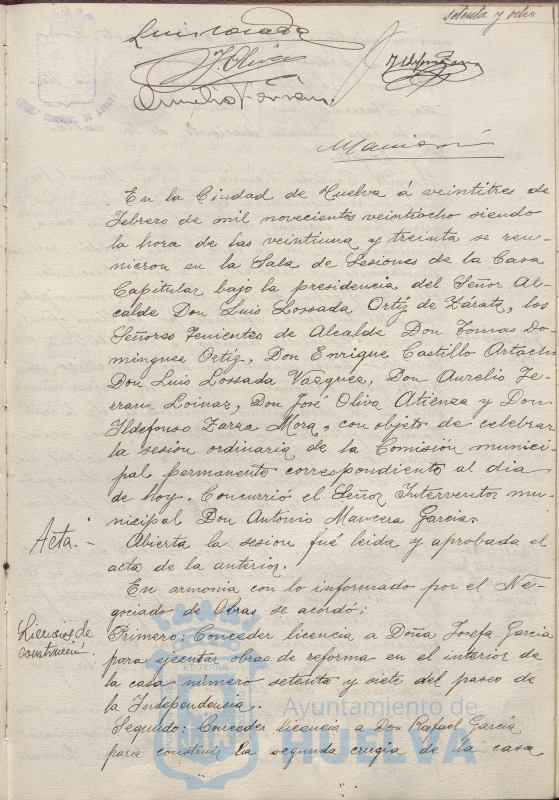 setenta y ocho
Luis Losada
J. Oliva
Ildefonso Zarza
Aurelio Ferran
En la Ciudad de Huelva á veintitres de
Febrero de mil novecientos veintiocho siendo
la hora de las veintiuna y treinta se reu-
nieron en la Sala de Sesiones de la Casa
Capitular bajo la presidencia del Señor Al-
calde Don Luis Lossada Ortiz de Zárate, los
Señores Tenientes de Alcalde Don Tomas Do-
minguez Ortiz, Don Enrique Castillo Artacho
Don Luis Lossada Vazquez, Don Aurelio Fe-
rran Loinaz, Don José Oliva Atienza y Don
Ildefonso Zarza Mora, con objeto de celebrar
la sesion ordinaria de la Comisión munici-
pal permanente correspondiente al dia
de hoy. Concurrió el Señor Interventor mu-
nicipal Don Antonio Mancera Garcia.
Acta.-
Abierta la sesion fué leida y aprobada el
acta de la anterior.
En armonia con lo informado por el Ne-
gociado de Obras se acordó:
Licencias de
construcción.
Primero: Conceder licencia a Doña Josefa Garcia
para ejecutar obras de reforma en el interior de
la casa número setenta y siete del paseo de
la Independencia.
Segundo: Conceder licencia a Don Rafael García
para construir la segunda crugia de la casa
Ayuntamiento de
HUELVA